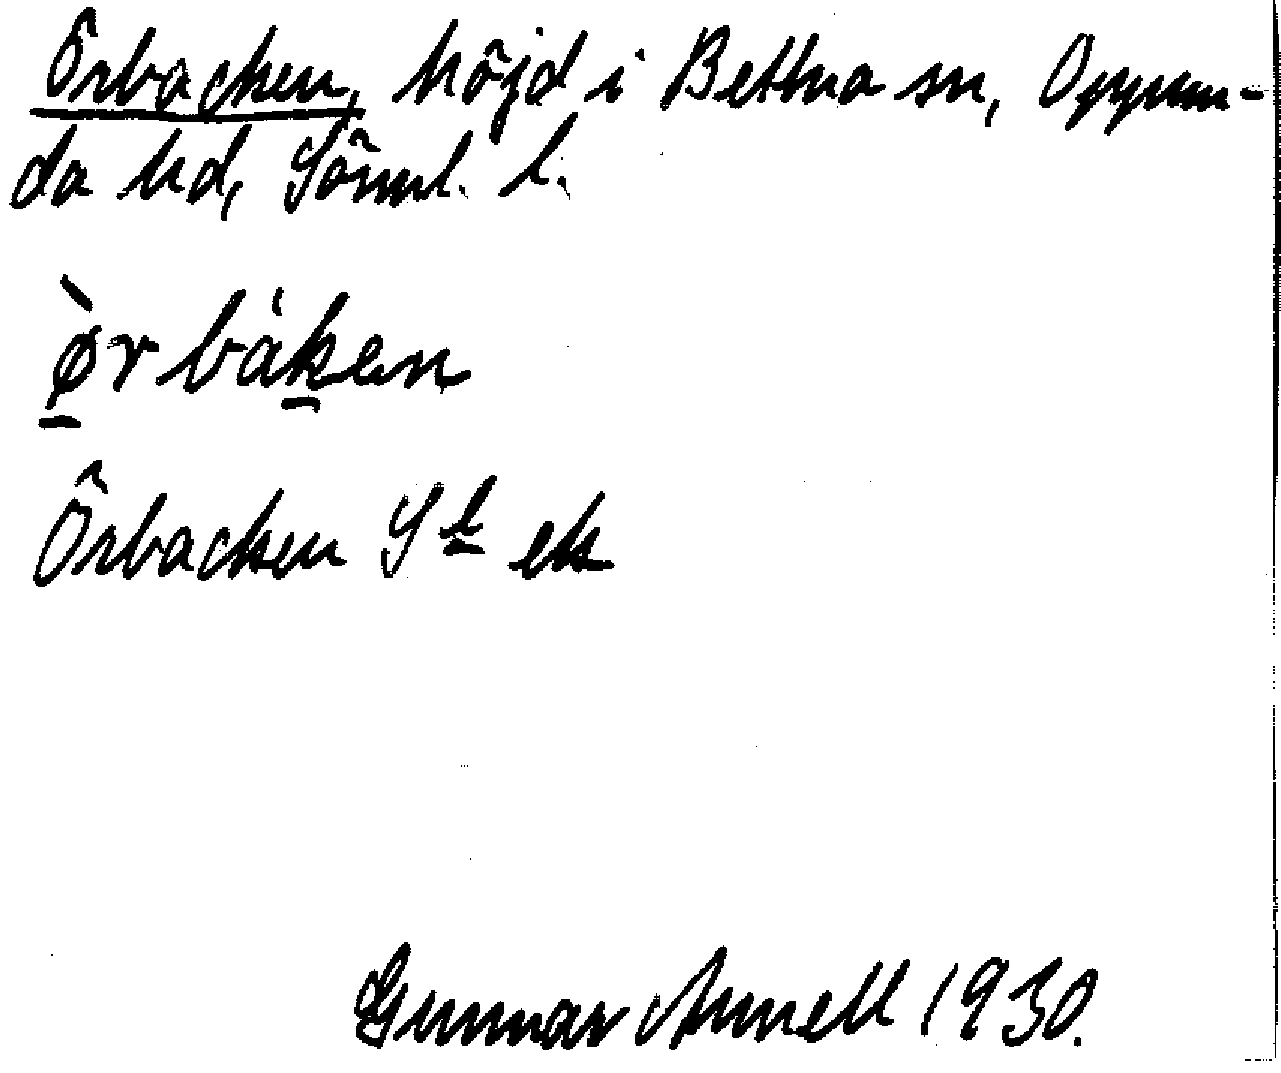 Örbacken, höjd i Bettna sn, Oppun-
da hd, Söml. l.
ø̀rbáken
Örbacken S le ek
Gunnar Annell 1930.